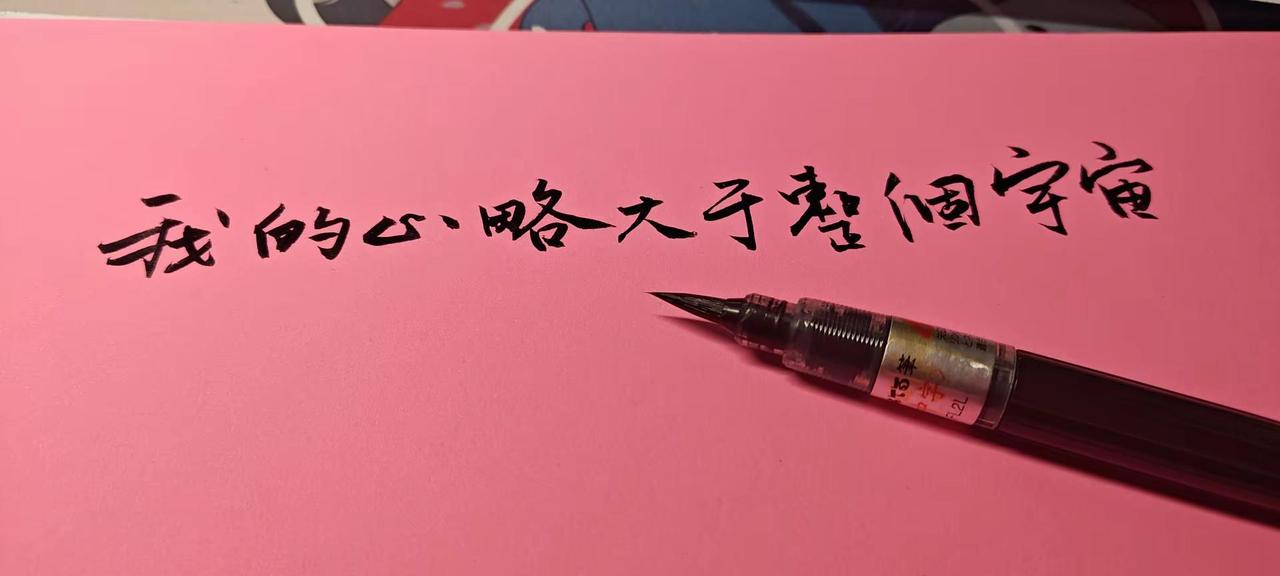 我的心略大于整個宇宙